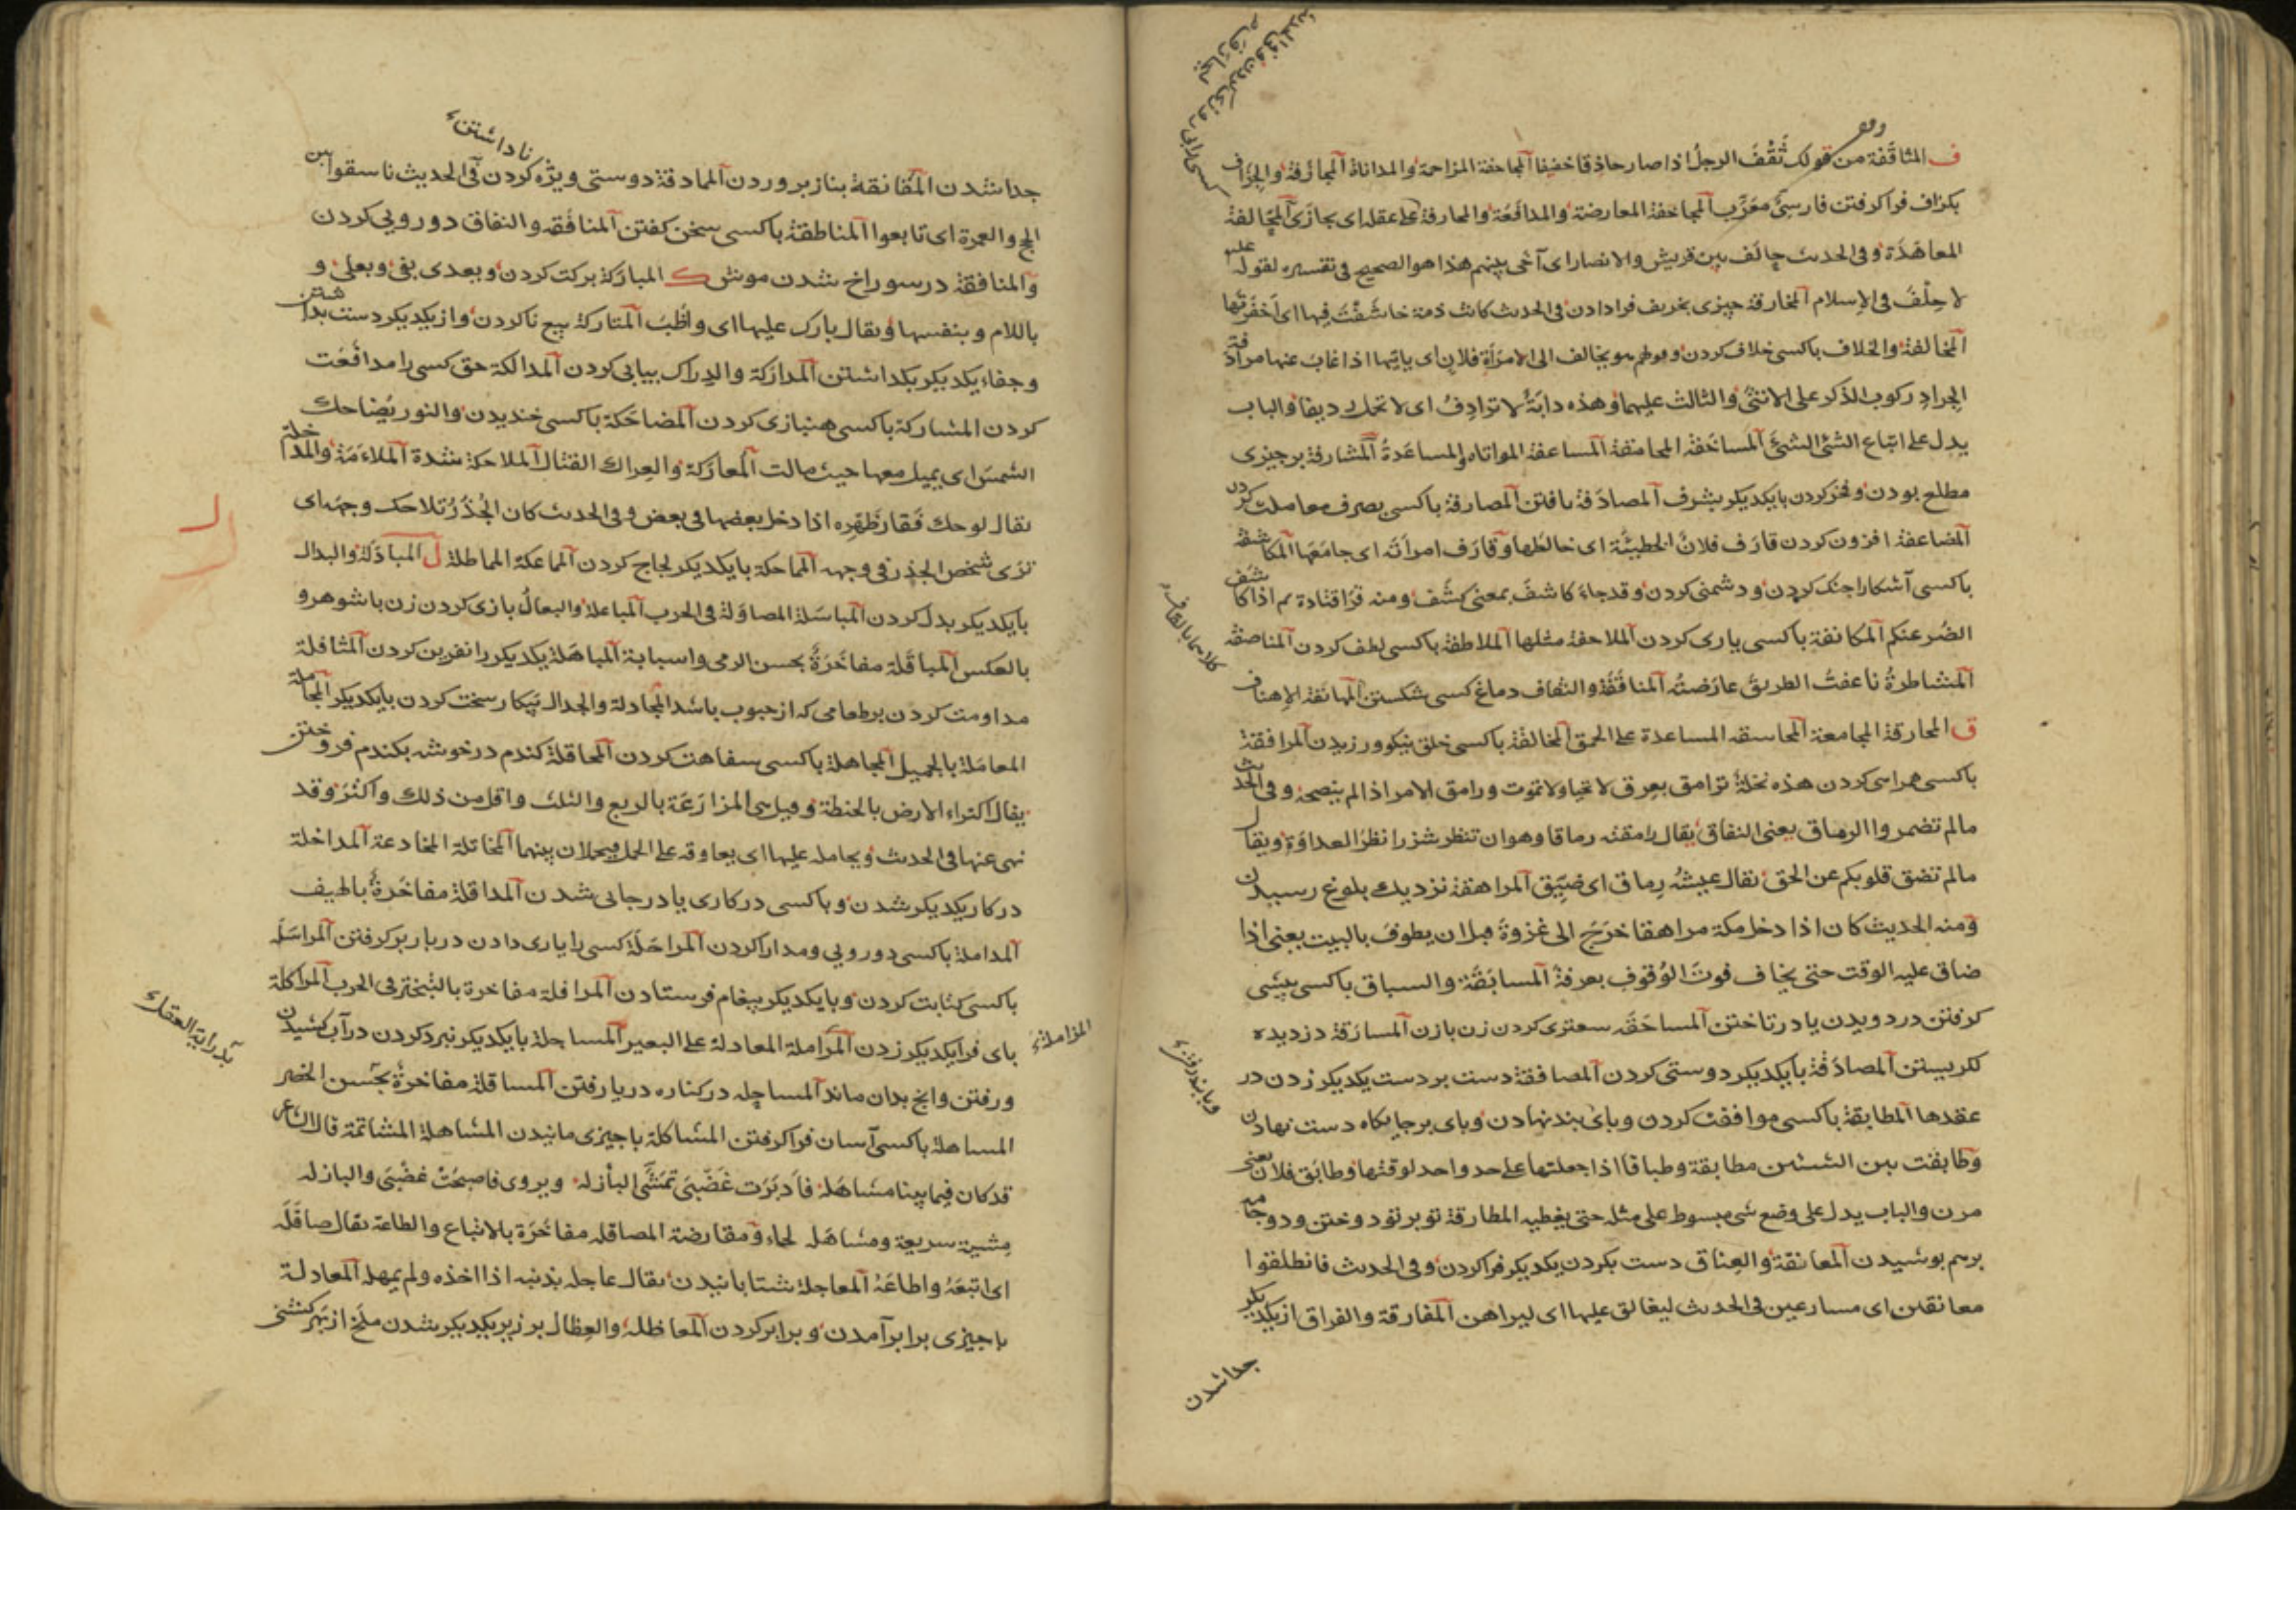 ف المثاقفة من قولك ثَقُفَ الرجلُ اذا صار حاذقا خفيفا المجاحفة المزاحمة والمداناة المجازفة والجزاف
بكزاف فراكرفتن فارسيٌّ معرّب المجاحفة المعارضة والمدافعة والمحارفة على عقله اى يجازى المحالفة
المعاهدة وفى الحديث حالف بين قريش والانصار اى آخى بينهم هذا هو الصحيح فى تفسيره لقوله عليه
لا حِلْفَ فى الاسلام المخارفة چيزى بخريف فرادادن فى الحديث كانت ذمة خاشَفْتَ فيها اى اخفرتها
المخالفة والخلاف باكسى خلاف كردن وقولهم هو يخالف الى الامرأة فلان اى ياتيها اذا غاب عنها مرادفة
الجراد ركوب الذكر على الانثى والثالث عليهما وهذه دابّةٌ لا ترادِفُ اى لا تحمل رديفا والباب
يدل على اتباع الشئ الشئَ المساخفة المحامقة المساعفة المواتاه والمساعدةُ المشارفة برچيزى
مطلع بودن وفخر كردن بايكديكر بشرف المصادفة يافتن المصارفة باكسى بصرف معاملت كردن
المضاعفة افزون كردن قارف فلانٌ الخطيئة اى خالطها وقارف امرأته اى جامعها المكاشفة
باكسى آشكارا جنك كردن ودشمنى كردن وقد جاء كاشف بمعنى كشف ومنه قرا قتادة ثم اذا كاشف
الضر عنكم المكانفة باكسى يارى كردن الملاحفة مثلها الملاطفة باكسى لطف كردن المناصفة
المشاطرةُ ناعفتُ الطريقَ عارضتُه المناقفة والنقاف دماغ كسى شكستن المهانفة الاهناف
ق المحارقة المجامعة المحامقة المساعدة على الحمق المخالقة باكسى خلق نيكو ورزيدن المرافقة
باكسى همراهى كردن هذه نخلةٌ ترامق بعرق لا تحيا ولا تموت ورامق الامر اذا لم ينصحه وفى الحديث
مالم تضمروا الرماق يعنى النفاق يقال رامقته رماقا وهو ان تنظر شزرا نظر العداوة ويقال
مالم تضق قلوبكم عن الحق يقال عيشه رماق اى ضيّق المراهقة نزديك بلوغ رسيدن
ومنه الحديث كان اذا دخل مكة مراهقا خرج الى عرفة قبل ان يطوف بالبيت يعنى اذا
ضاق عليه الوقت حتى يخاف فوت الوُقوف بعرفة المسابقة والسباق باكسى پيشى
كرفتن در دويدن يا در تاختن المساحقة سعترى كردن زن بازن المسارقة دزديده
نكريستن المصادقة بايكديكر دوستى كردن المصافقة دست بردست يكديكر زدن در
عقدها المطابقة باكسى موافقت كردن وپاى بند نهادن وپاى برجايكاه دست نهادن
وطابقت بين الشيئين مطابقة وطباقا اذا جعلتهما على حذو واحد لوقتها وطابق فلان بمعنى
مرن والباب يدل على وضع شى مبسوط على مثله حتى يغطيه المطارقة تو بر تو دوختن ودو جامه
برهم پوشيدن المعانقة والعناق دست بكردن يكديكر فراكردن وفى الحديث فانطلقوا
معانقين اى مسارعين فى الحديث ليغالق عليها اى ليراهن المفارقة والفراق از يكديكر
جدا شدن
جدا شدن المفانقة بناز بروردن المماذقة دوستى ويژه ناكردن فى الحديث ناسقوا بين
ناداشتن
الحج والعمرة اى تابعوا المناطقة باكسى سخن كفتن المنافقه والنفاق دورويى كردن
والمنافقة در سوراخ شدن موش ك المباركة بركت كردن ويعدى بفى وبعلى و
باللام وبنفسها ويقال بارك عليها اى واظِب المتاركة بيع ناكردن واز يكديكر دست بداشتن
وجفاء يكديكر بكذاشتن المداركة والدراك بياپى كردن المدالكة حق كسى را مدافعت
كردن المشاركة باكسى هنبازى كردن المضاحكة باكسى خنديدن والنور يُضاحك
الشمس اى يميل معها حيث مالت المعاركة والعراك القتال الملاحكة شدة الملاءمة والمداخلة
يقال لوحك فقار ظهره اذا دخل بعضها فى بعض وفى الحديث كان الجُدُر تلاحك وجهه اى
تُرى شخص الجدر فى وجهه المماحكة بايكديكر لجاج كردن المماعكة المماطلة ل المباذلة والبدال
بايكديكر بدل كردن المباسلة المصاولة فى الحرب المباعلة والبعالُ بازى كردن زن باشوهر و
بالعكس المباقلة مفاخرةٌ بحسن الرمى واسبابه المباهلة يكديكر را نفرين كردن المثافلة
مداومت كردن برطعامى كه از حبوب باشد المجادلة والجدال پيكار سخت كردن بايكديكر المجاملة
المعاملة بالجميل المجاهلة باكسى سفاهت كردن المحاقلة كندم در خوشه بكندم فروختن
يقال اكتراء الارض بالحنطة وقيل هى المزارعة بالربع والثلث واقل من ذلك واكثر وقد
نهى عنها فى الحديث ويحامله عليها اى يعاوقه على الحمل فيحملان بينهما المخاتلة المخادعة المداخلة
در كار يكديكر شدن وباكسى در كارى يا در جايى شدن المداقلة مفاخرةٌ
المداملة باكسى دورويى ومدارا كردن المراحلة كسى را يارى دادن در بار بركرفتن المراسلة
باكسى كتابت كردن وبايكديكر پيغام فرستادن المرافلة مفاخرة بالتبختر فى الحرب المراكلة
پاى فرا يكديكر زدن المزاملة المعادلة على البعير المساجلة بايكديكر نبرد كردن در آب كشيدن
المزاملة
ورفتن وانچ بدان ماند المساحلة در كناره دريا رفتن المساقلة مفاخرةٌ بحسن الخصر
المساهلة باكسى آسان فراكرفتن المشاكلة باچيزى مانيدن المشاهلة المشاتمة قال الشاعر
قد كان فيما بيننا مشاهله فأدبرت غضبى تمشّى البأزله ويروى فاصبحت غضبى والبازله
مِشية سريعة ومشاهله لحاء ومقارضة المصاقلة مفاخرة بالاتباع والطاعة يقال صاقله
اى اتبعه واطاعَه المعاجلة شتابانيدن يقال عاجله بذنبه اذا اخذه ولم يمهله المعادلة
باچيزى برابر آمدن وبرابر كردن المعاظلة والعظال بر زبر يكديكر شدن ملخ از بهر كشنى